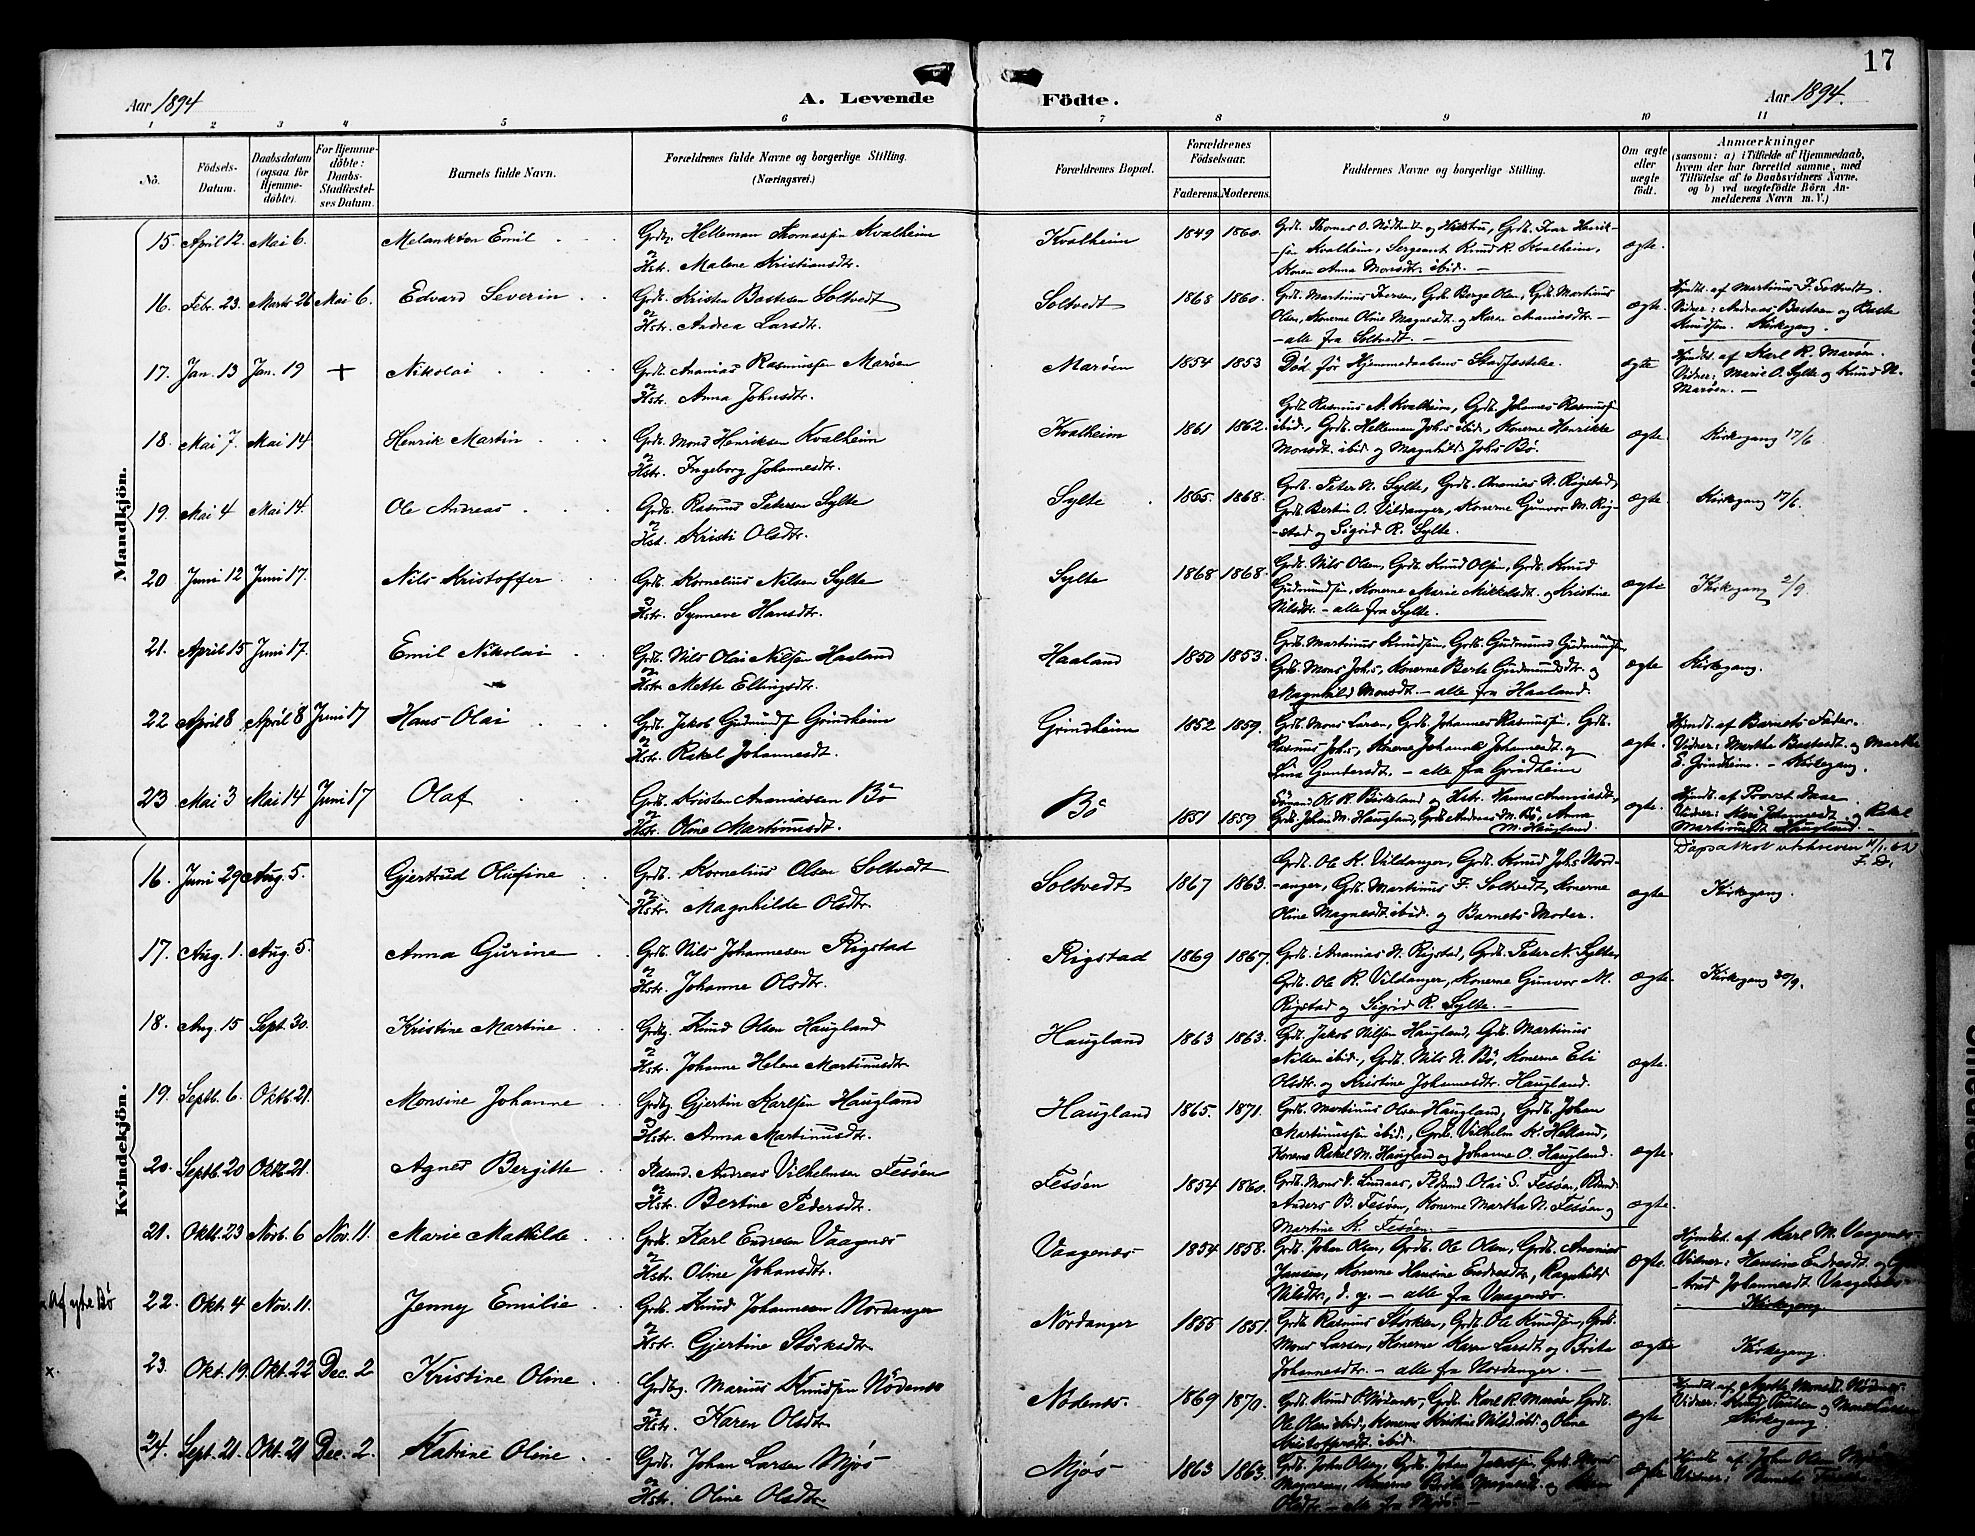 17
Aar 1894
A. Levende
Födte.
Aar 1894.
1 2 3 4 5 6 7 8 9 10 11
No.
Födsels-
Datum.
Daabsdatum
(ogsaa for
Hjemme-
döbte).
For Hjemme-
döbte:
Daabs-
Stadfæstel-
ses Datum.
Barnets fulde Navn.
Forældrenes fulde Navne og borgerlige Stilling.
(Næringsvei.)
Forældrenes Bopæl.
Forældrenes
Födselsaar.
Faderens. Moderens.
Faddernes Navne og borgerlige Stilling.
Om ægte
eller
uægte
födt.
Anmærkninger
(saasom: a) i Tilfælde af Hjemmedaab,
hvem der har forrettet samme, med
Tilföielse af to Daabsvidners Navne,
og b) ved uegtefödte Börn An-
melderens Navn m. V.)
Mandkjön.
15. April 12. Mai 6. Melankton Emil Grdbr. Helleman Thomassen Kvalheim
og Hstr. Malene Kristiansdtr.
Kvalheim 1849 1860. ægte.
Konen Anna Monsdtr. ibid. —
16. Febr. 23. Marts 26 Mai 6. Edvard Severin Grdb. Kristen Bastesen Soltvedt
og Hstr. Andrea Larsdtr.
Soltvedt 1868 1860. Grdb. Martinus Iversen, Grdb. Berge Olsen, Grdb. Martinus
Olsen, Konerne Oline Magnesdt. og Karen Ananiasdtr. —
— alle fra Soltvedt. —
ægte. Hjmdt. af Martinus F. Soltvedt.
Vidner: Andreas Bastesen og Baste
Knudsen. Kirkegang.
17. Jan. 13 Jan. 19 + Nikolai Grdb. Ananias Rasmussen Marøen
og Hstr. Anna Johnsdtr.
Marøen 1854 1853 Død før Hjemmedaabens Stadfæstelse. ægte
Hjmdt. af Karl R. Marøen.
Vidner: Marie O. Sylte og Knud N.
Marøen. —
18. Mai 7. Mai 14 Henrik Martin Grdb. Mons Henriksen Kvalheim
og Hstr. Ingeborg Johannesdtr.
Kvalheim 1861 1862. Grdb. Rasmus A. Kvalheim, Grdb. Johannes Rasmussen
ibid., Grdb. Helleman Johs. ibid., Konerne Henrikke
Monsdt. ibid. og Magnhild Johs. Bø.
ægte. Kirkegang 17/6
19. Mai 4 Mai 14. Ole Andreas Grdb. Rasmus Petersen Sylte
og Hst. Kristi Olsdtr.
Sylte 1865. 1868. Grdb. Peter N. Sylte, Grdb. Ananias N. Rigstad,
Grdb. Bertin O. Vildanger, Konerne Gunvor M. Rig-
-stad og Sigrid R. Sylte.
ægte. Kirkegang 17/6.
20 Juni 12 Juni 17. Nils Kristoffer Grdb. Kornelius Nilsen Sylte
og Hstr. Synneve Hansdtr.
Sylte 1868 1868. Grdb. Nils Olsen, Grdb. Knud Olsen, Grdb. Knud
Gudmundsen, Konerne Marie Mikkelsdt. og Kristine
Nilsdtr. — alle fra Sylte.
ægte Kirkegang 2/9.
21. April 15 Juni 17. Emil Nikolai Grdb. Nils Olai Nilsen Haaland
og Hstr. Mette Ellingsdtr.
Haaland 1850 1853. Grdb. Martinus Knudsen, Grdb. Gudmund Gudmundsen,
Grdb. Mons Johs., Konerne Berte Gudmundsdtr. og
Magnhild Monsdt. — alle fra Haaland.
ægte Kirkegang.
22 April 8 April 8 Juni 17 Hans Olai Grdb. Jakob Gudmundsen Grindheim
og Hstr. Rakel Johannesdt.
Grindheim 1852 1859. Grdb. Mons Larsen, Grdb. Johannes Rasmussen, Grdb.
Rasmus Johs., Konerne Johanne Johannesdt. og
Sina Gundersdt. — alle fra Grindheim
ægte. Hjmdt. af Barnets Fader.
Vidner: Martha Bastesdt. og Martha
E. Grindheim. — Kirkegang.
23 Mai 3 Mai 14 Juni 17 Olaf Grdb. Kristen Ananiassen Bø
og Hstr. Oline Martinusdt.
Bø 1851 1859. Ole R. Birkeland og Hstr. Hanna Ananiasdt,
Grdb. John M. Haugland, Grdb. Andreas M. Bø, Anna
M. Haugland.
ægte. Hjmdt. af Provst Daae.
Martinus M. Haugland. —
Kvindekjön.
16. Juni 29 Aug. 5. Gjertrud Olufine Grdb. Kornelius Olsen Soltvedt
og Hstr. Magnhilde Olsdtr.
Soltvedt 1867 1863. Grdb. Ole K. Vildanger, Grdb. Knud Johs. Nord-
-anger, Grdb. Martinus F. Soltvedt, Konerne
Oline Magnesdt. ibid. og Barnets Moder.
ægte Kirkegang.
17. Aug. 1. Aug. 5. Anna Gurine Grdb. Nils Johannesen Rigstad
og Hstr. Johanne Olsdtr.
Rigstad 1869 1867. Grdb. Ananias N. Rigstad, Grdb. Peter N. Sylte,
Grdb. Ole R. Vildanger, Konerne Gunvor M.
Rigstad og Sigrid R. Sylte. —
ægte. Kirkegang 30/9.
18. Aug. 15 Sept. 30. Kristine Martine Grdbr. Knud Olsen Haugland
og Hstr. Johanne Helene Martinusdtr.
Haugland 1863 1863. Grdb. Jakob Nilsen Haugland, Grdb. Martinus
Nilsen ibid., Grdb. Nils N. Bø, Konerne Eli
Olsdtr. og Kristine Johannesdtr. Haugland.
ægte.
19. Septb. 6. Oktb. 21. Monsine Johanne Grdbr. Gjertin Karlsen Haugland
og Hstr. Anna Martinusdtr.
Haugland 1865. 1871. Grdb. Martinus Olsen Haugland, Grdb. Johan
Martinussen ibid., Grdb. Vilhelm K. Helland,
Konerne Rakel M. Haugland og Johanne O. Haugland.
ægte.
20. Septb. 20 Oktb. 21. Agnes Bergitte Andreas Vilhelmsen Fesøen
og Hstr. Bertine Pedersdtr.
Fesøen 1854 1860. Grdb. Mons V. Lindaas, Olai S. Fesøen,
Anders B. Fesøen, Konerne Martha N. Fesøen og
Martine K. Fesøen. —
ægte.
21. Oktb. 23 Novb. 6 Nov. 11. Marie Mathilde Grdb. Karl Endresen Vaagenes
og Hstr. Oline Johansdtr.
Vaagenæs 1854 1858. Grdb. Johan Olsen, Grdb. Ole Olsen, Grdb. Ananias
Jansen, Konerne Hansine Endresdtr., Ragnhild
Nilsdtr., d. y. — alle fra Vaagenæs.
ægte. Hjmdbt. af Karl M. Vaagenæs.
Vidner: Hansine Endresdt. og Gjer-
-trud Johannesdt. Vaagenæs.
Kirkegang.
22. Okt. 4 Nov. 11. Jenny Emilie Grdb. Knud Johannesen Nordanger
og Hstr. Gjertine Størksdtr.
Nordanger 1855 1851. Grdb. Rasmus Størksen, Grdb. Ole Knudsen, Grdb.
Mons Larsen, Konerne Karen Larsdt. og Brite
Johannesdtr. — alle fra Nordanger. —
ægte Kirkegang.
x.
23. Okt. 19. Okt. 22 Dec. 2 Kristine Oline Grdbr. Marius Knudsen Nødenes
og Hstr. Karen Olsdt.
Nødenes. 1869 1870. Grdb. Knud P. Nødenes, Grdb. Karl R. Marøen, Grdb.
Kristoffersdt. ibid.
ægte Kirkegang.
24. Sept. 21. Okt. 21 Dec. 2. Katrine Oline Grdb. Johan Larsen Mjøs
og Hstr. Oline Olsdtr.
Mjøs 1863 1863.
Olsdtr. — alle fra Mjøs —
ægte